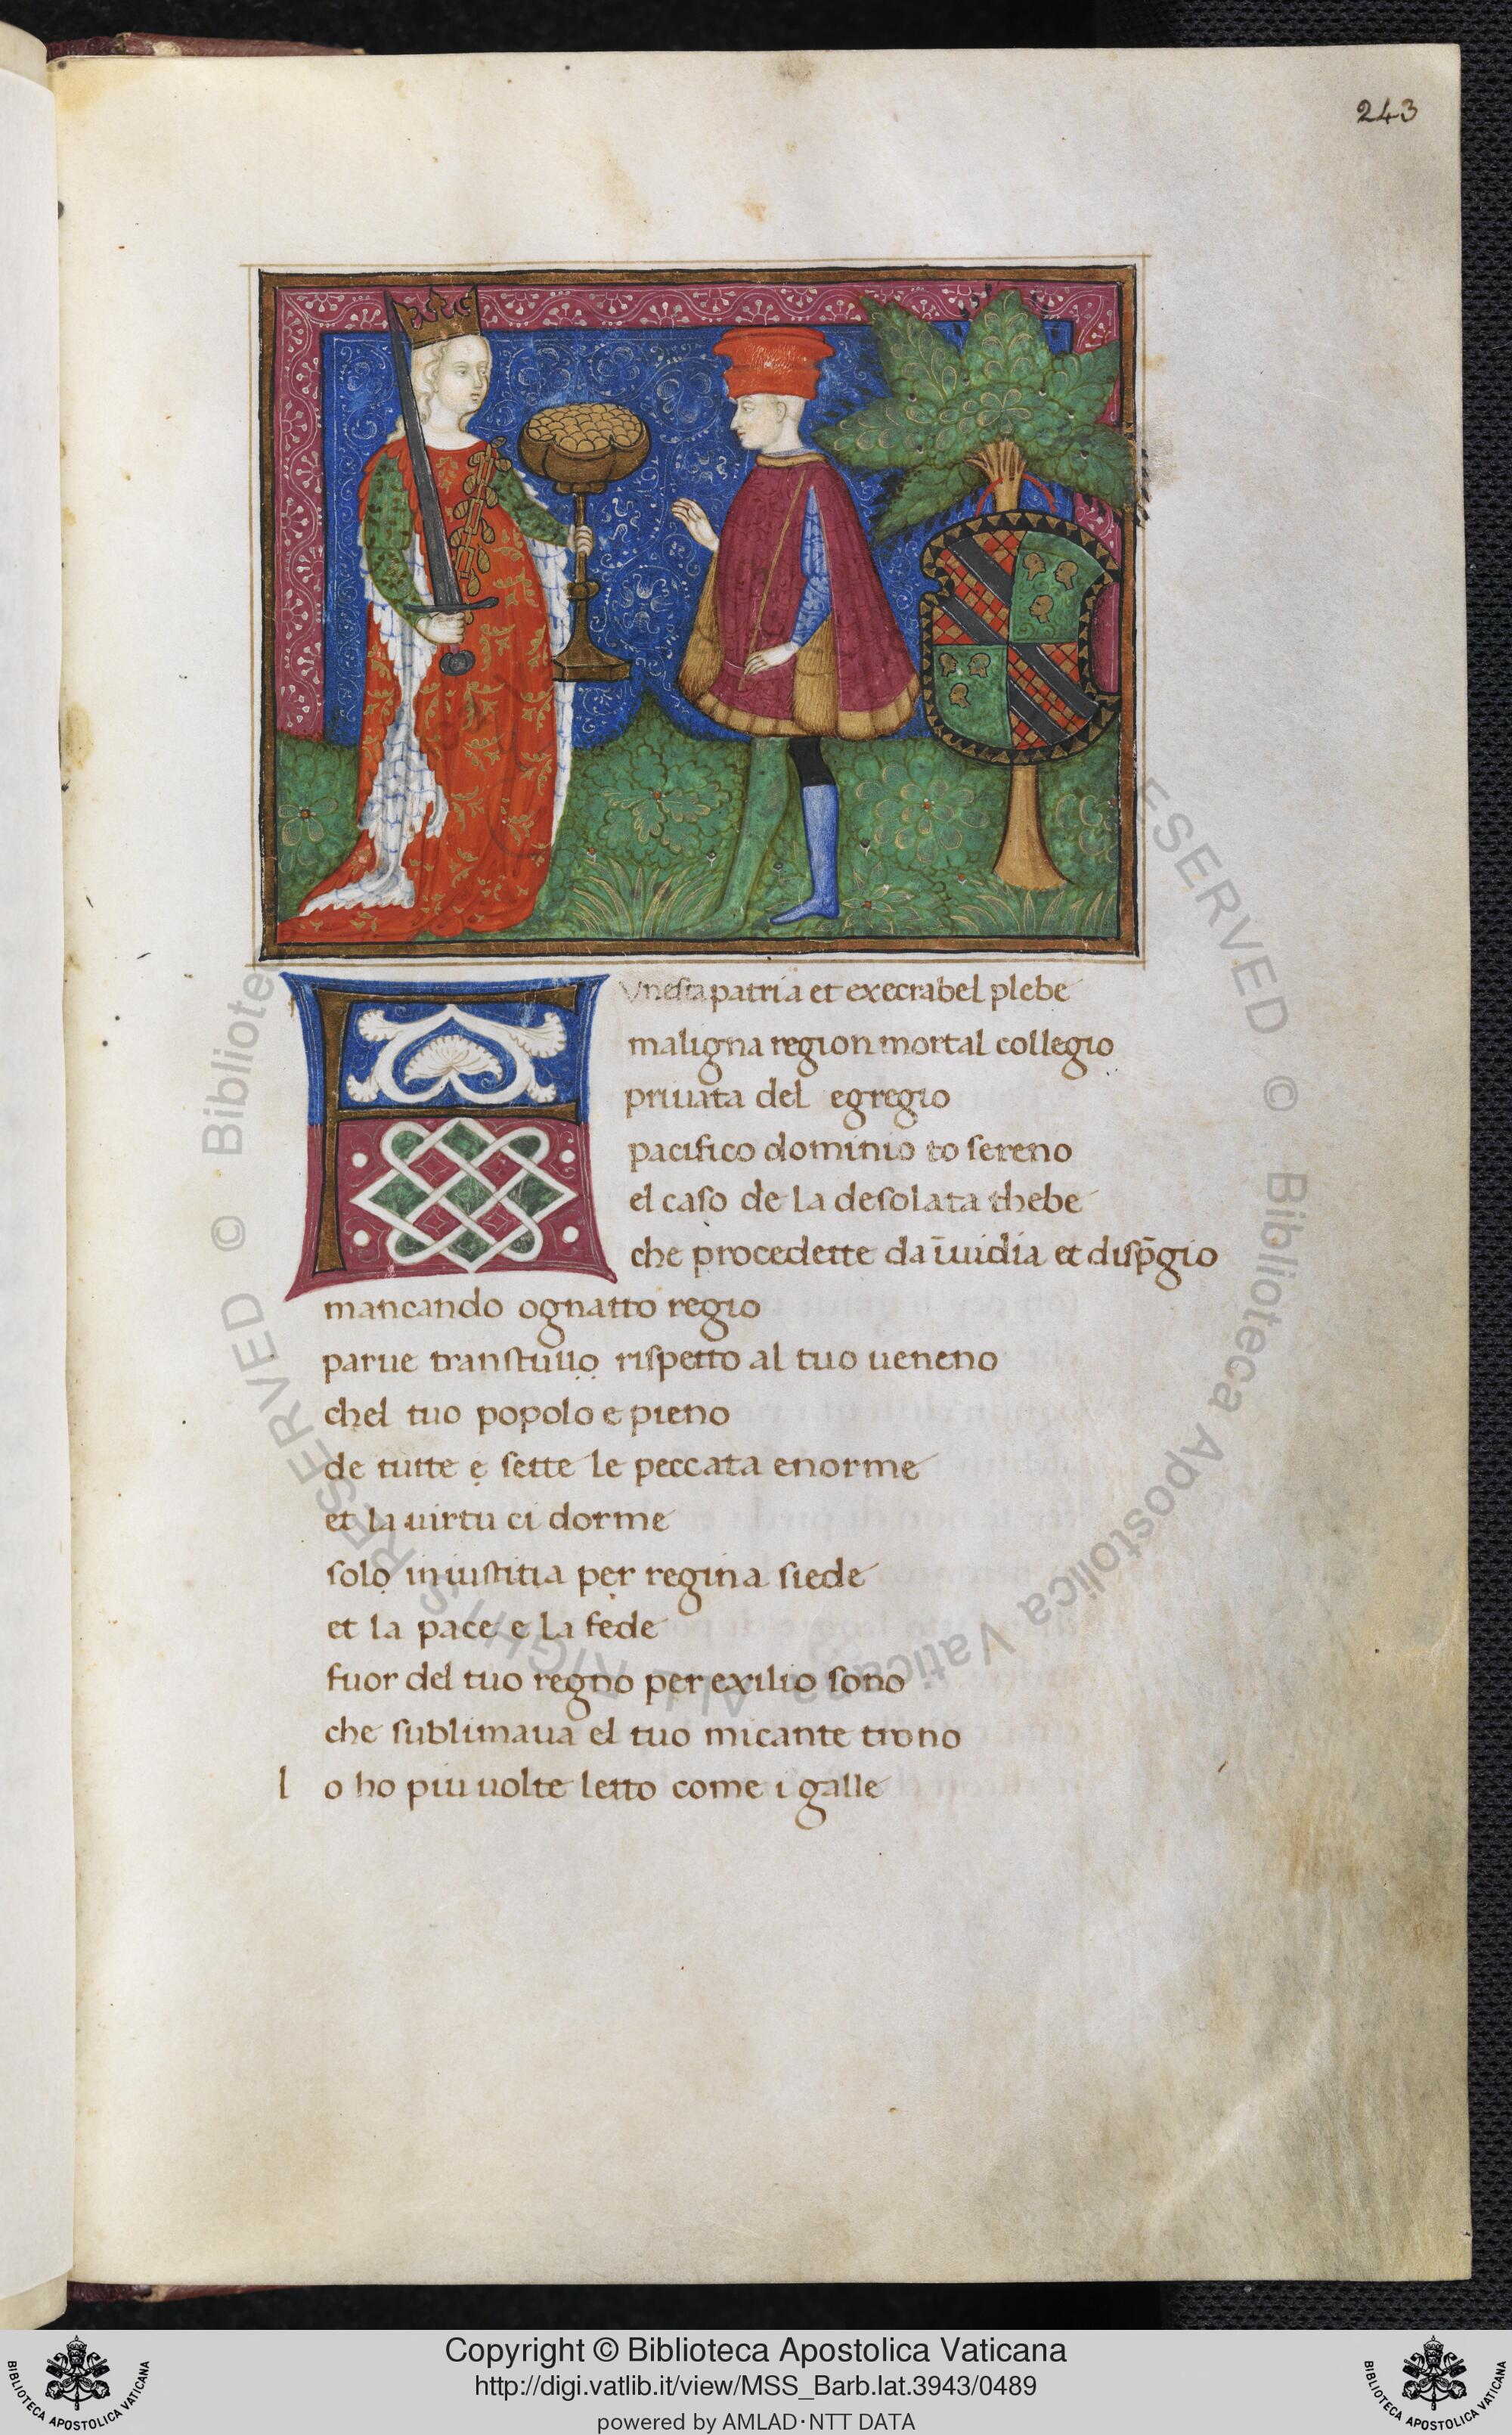 243
Vnesta patria et execrabel plebe
maligna region mortal collegio
priuata del egregio
pacifico dominio to sereno
el caso de la desolata thebe
che procedette da īuidia et disp̄gio
mancando ognatto regio
parue transtullo rispetto al tuo ueneno
chel tuo popolo e pieno
de tutte e sette le peccata enorme
et la uirtu ci dorme
solo iniustitia per regina siede
et la pace e la fede
fuor del tuo regno per exilio sono
che sublimaua el tuo micante trono
l o ho piu uolte letto come i galle
© Biblioteca Apostolica Vaticana ALL RIGHTS RESERVED
Copyright © Biblioteca Apostolica Vaticana
http://digi.vatlib.it/view/MSS_Barb.lat.3943/0489
powered by AMLAD·NTT DATA
BIBLIOTECA APOSTOLICA VATICANA
BIBLIOTECA APOSTOLICA VATICANA